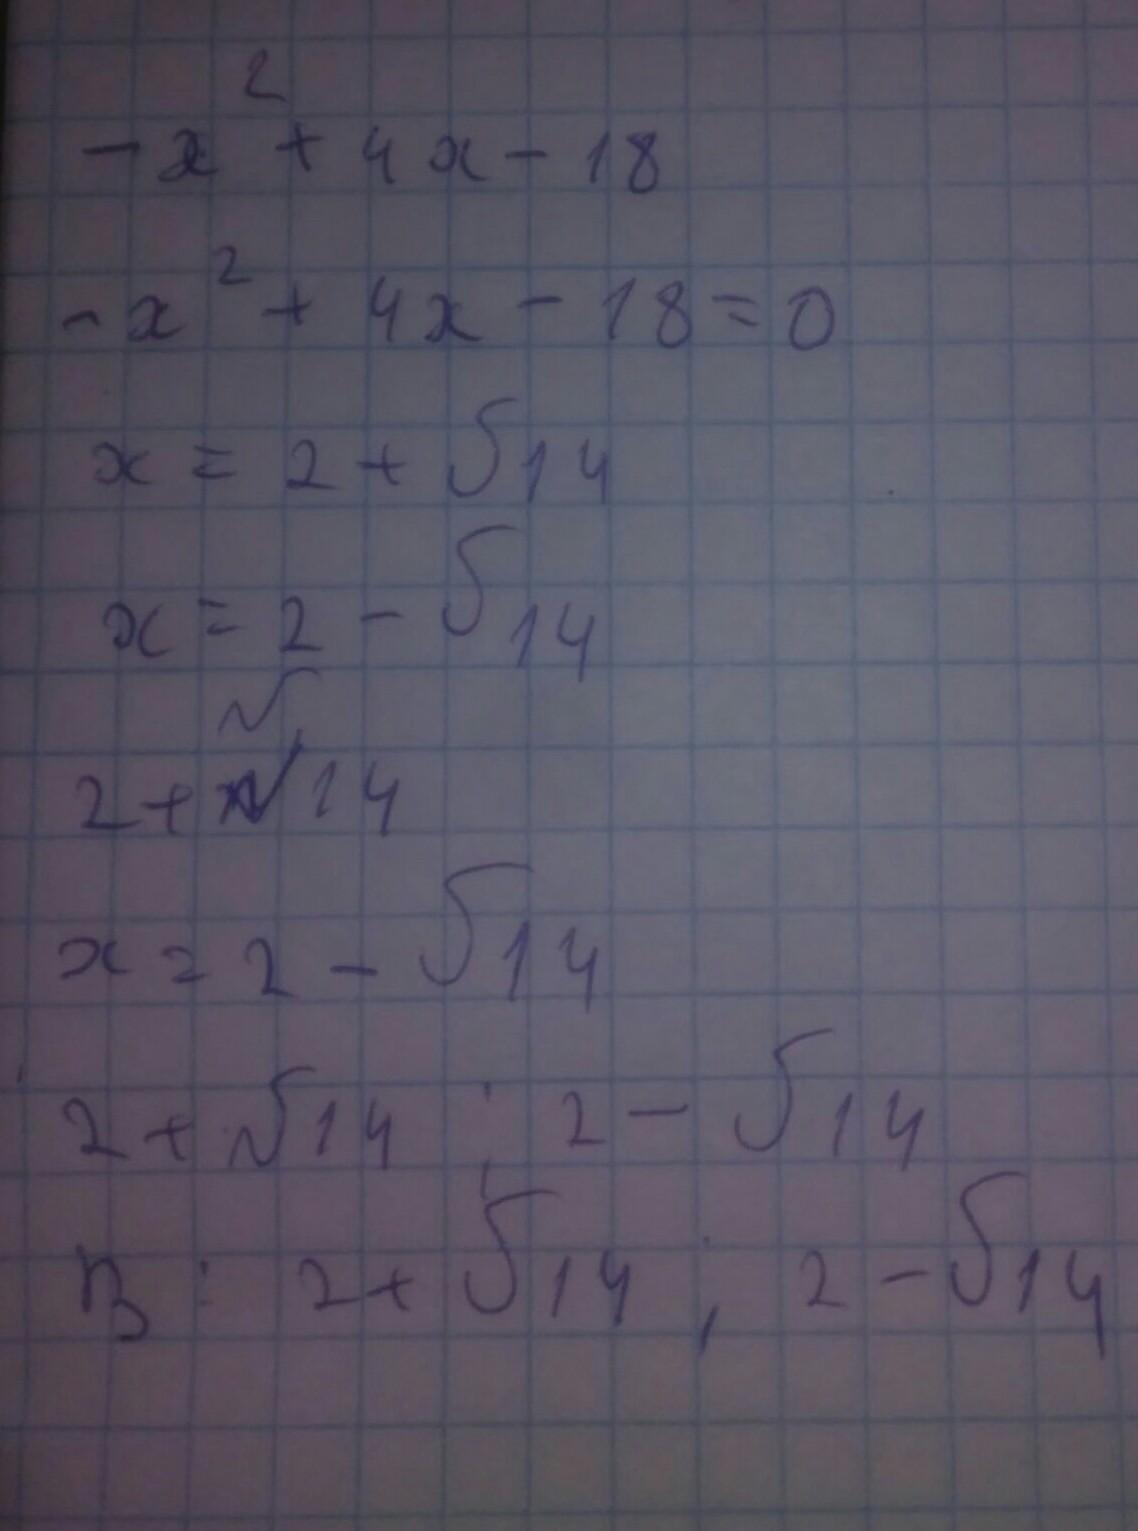 -x² + 4x - 18
-x² + 4x - 18 = 0
x = 2 + √14
x = 2 - √14
√
2 + √14
x = 2 - √14
2 + √14 ; 2 - √14
В: 2 + √14 ; 2 - √14